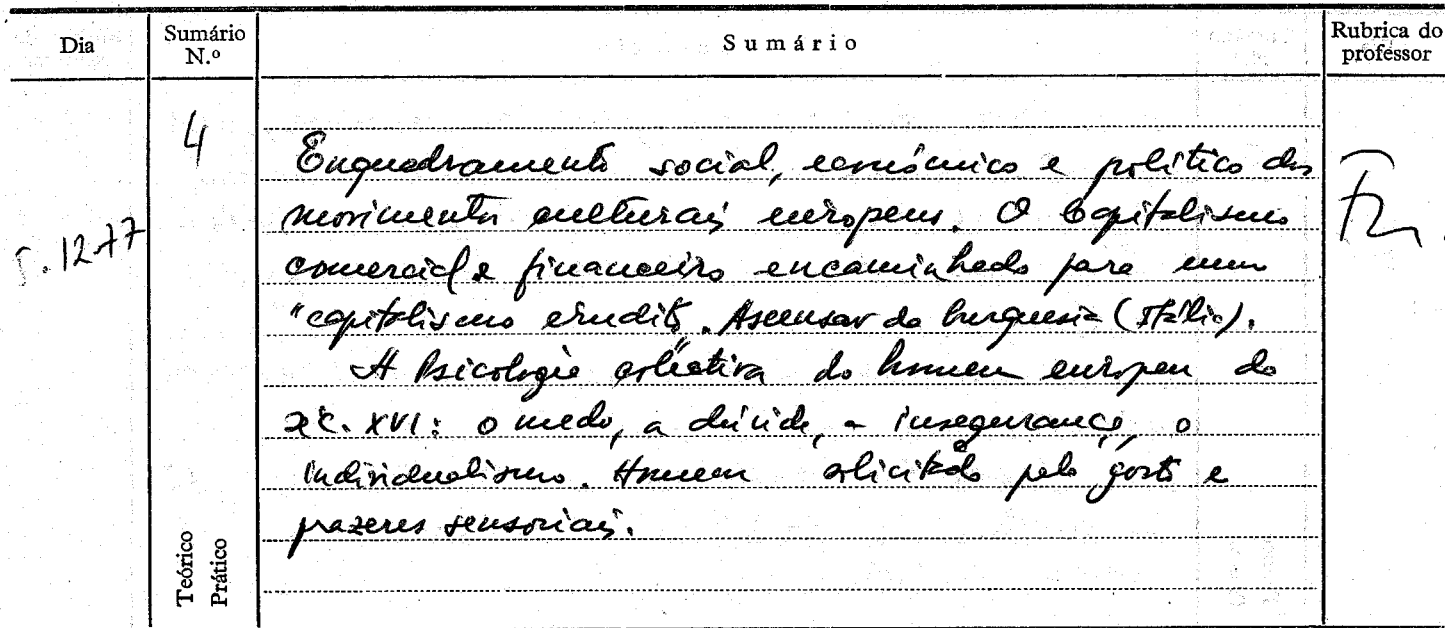 Dia
Sumário N.º
Sumário
Rubrica do professor
4
5.12.77
Enquadramento social, económico e político dos
movimentos culturais europeus. O Capitalismo
comercial e financeiro encaminhado para um
"capitalismo erudito". Ascensão da burguesia (Itália).
A Psicologia colectiva do homem europeu do
séc. XVI: o medo, a dúvida, a insegurança, o
individualismo. Homem solicitado pelo gosto e
prazeres sensoriais.
Teórico
Prático